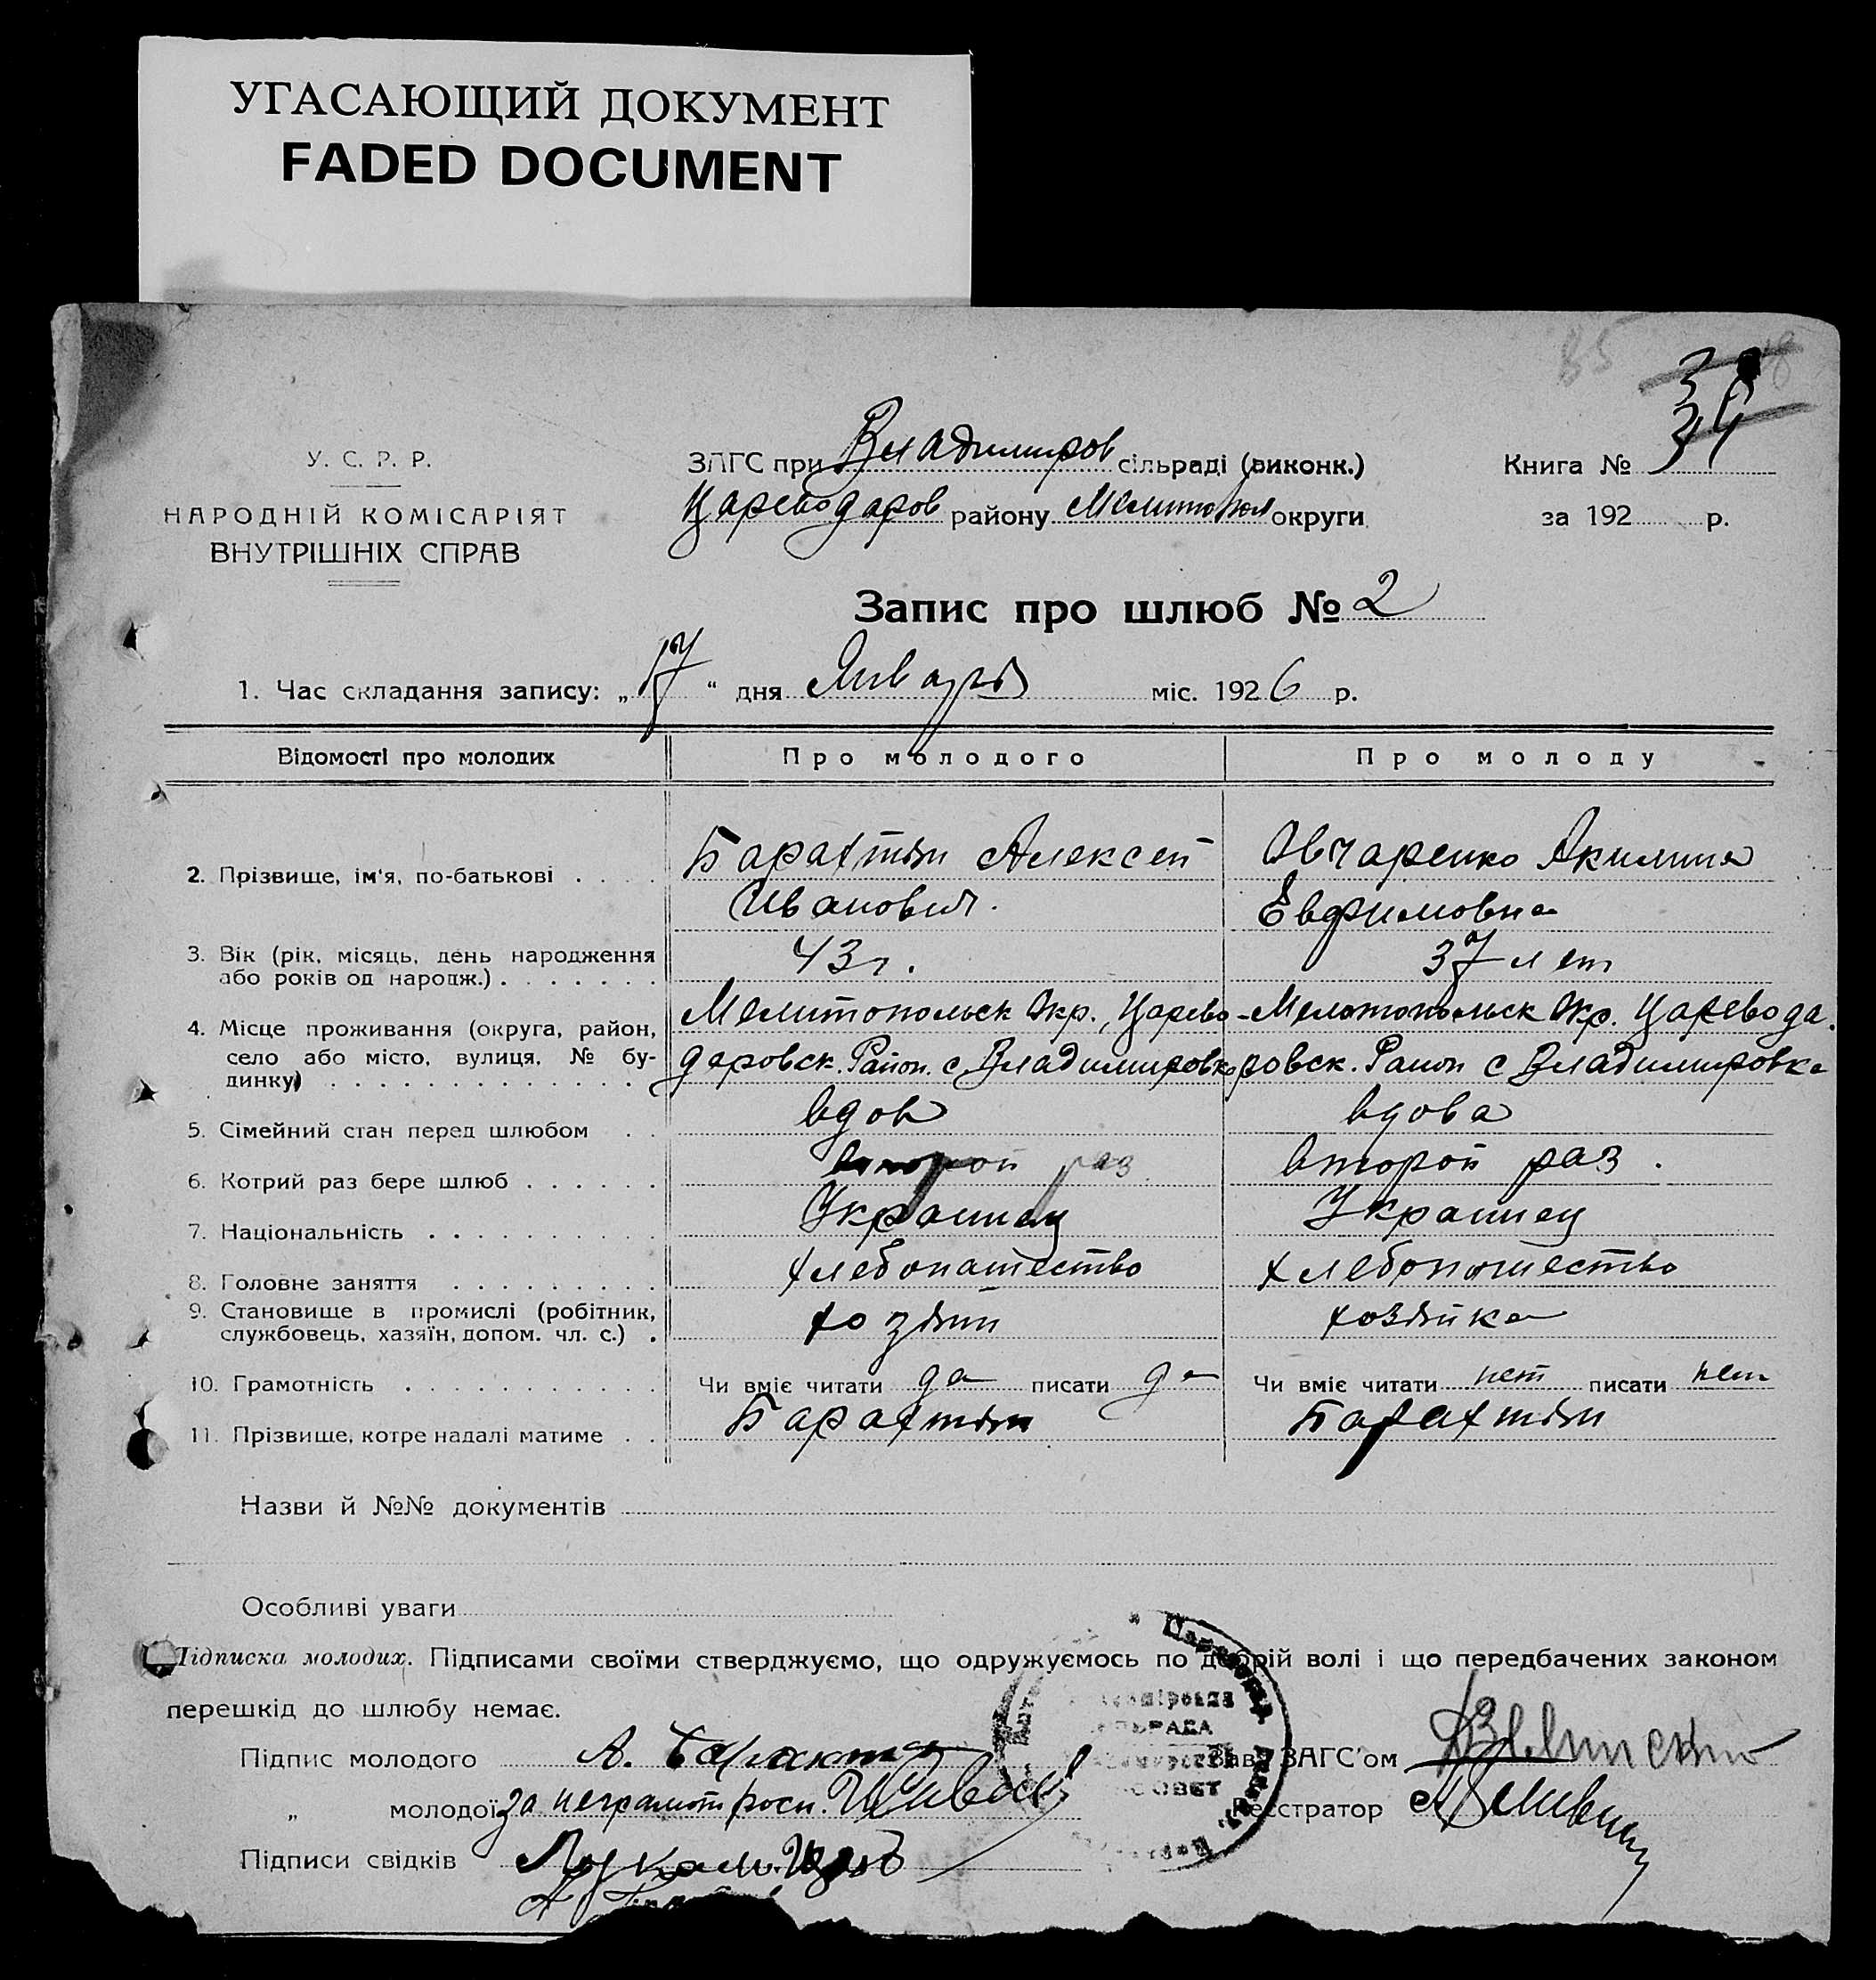 УГАСАЮЩИЙ ДОКУМЕНТ
FADED DOCUMENT
35
34
У. С. Р. Р.
НАРОДНІЙ КОМІСАРІЯТ
ВНУТРІШНІХ СПРАВ
ЗАГС при Владимиров сільраді (виконк.)
Цареводаров району Мелитопол округи
Книга №
за 192 р.
Запис про шлюб № 2
1. Час складання запису: „17“ дня Января міс. 1926 р.
Відомості про молодих Про молодого Про молоду
2. Прізвище, ім'я, по-батькові . . . . Барахтян Алексей Овчаренко Акилина
Иванович. Евфимовна
3. Вік (рік, місяць, день народження
або років од нородж.) . . . . . . . 43 г. 37 лет
4. Місце проживання (округа, район, Мелитопольск Окр., Царево- Мелитопольск Окр. Царевода
село або місто, вулиця, № бу- даровск. Район. с Владимировка ровск. Район с Владимировка
динку) . . . . . . . . . . . . . .
5. Сімейний стан перед шлюбом . . вдов вдова
6. Котрий раз бере шлюб . . . . . . второй раз второй раз .
7. Національність . . . . . . . . . . Украинец Украинец
8. Головне заняття . . . . . . . . . хлебопашество хлебопашество
9. Становище в промислі (робітник,
службовець, хазяїн, допом. чл. с.) . хозяин хозяйка
10. Грамотність . . . . . . . . . . . Чи вміє читати да писати да Чи вміє читати нет писати нет
11. Прізвище, котре надалі матиме . . Барахтян Барахтян
Назви й №№ документів
Особливі уваги
Підписка молодих. Підписами своїми стверджуємо, що одружуємось по добрій волі і що передбачених законом
перешкід до шлюбу немає.
Підпис молодого А. Барахтян Зав. ЗАГС'ом
„ молодої за неграмот росп. Реєстратор
Підписи свідків